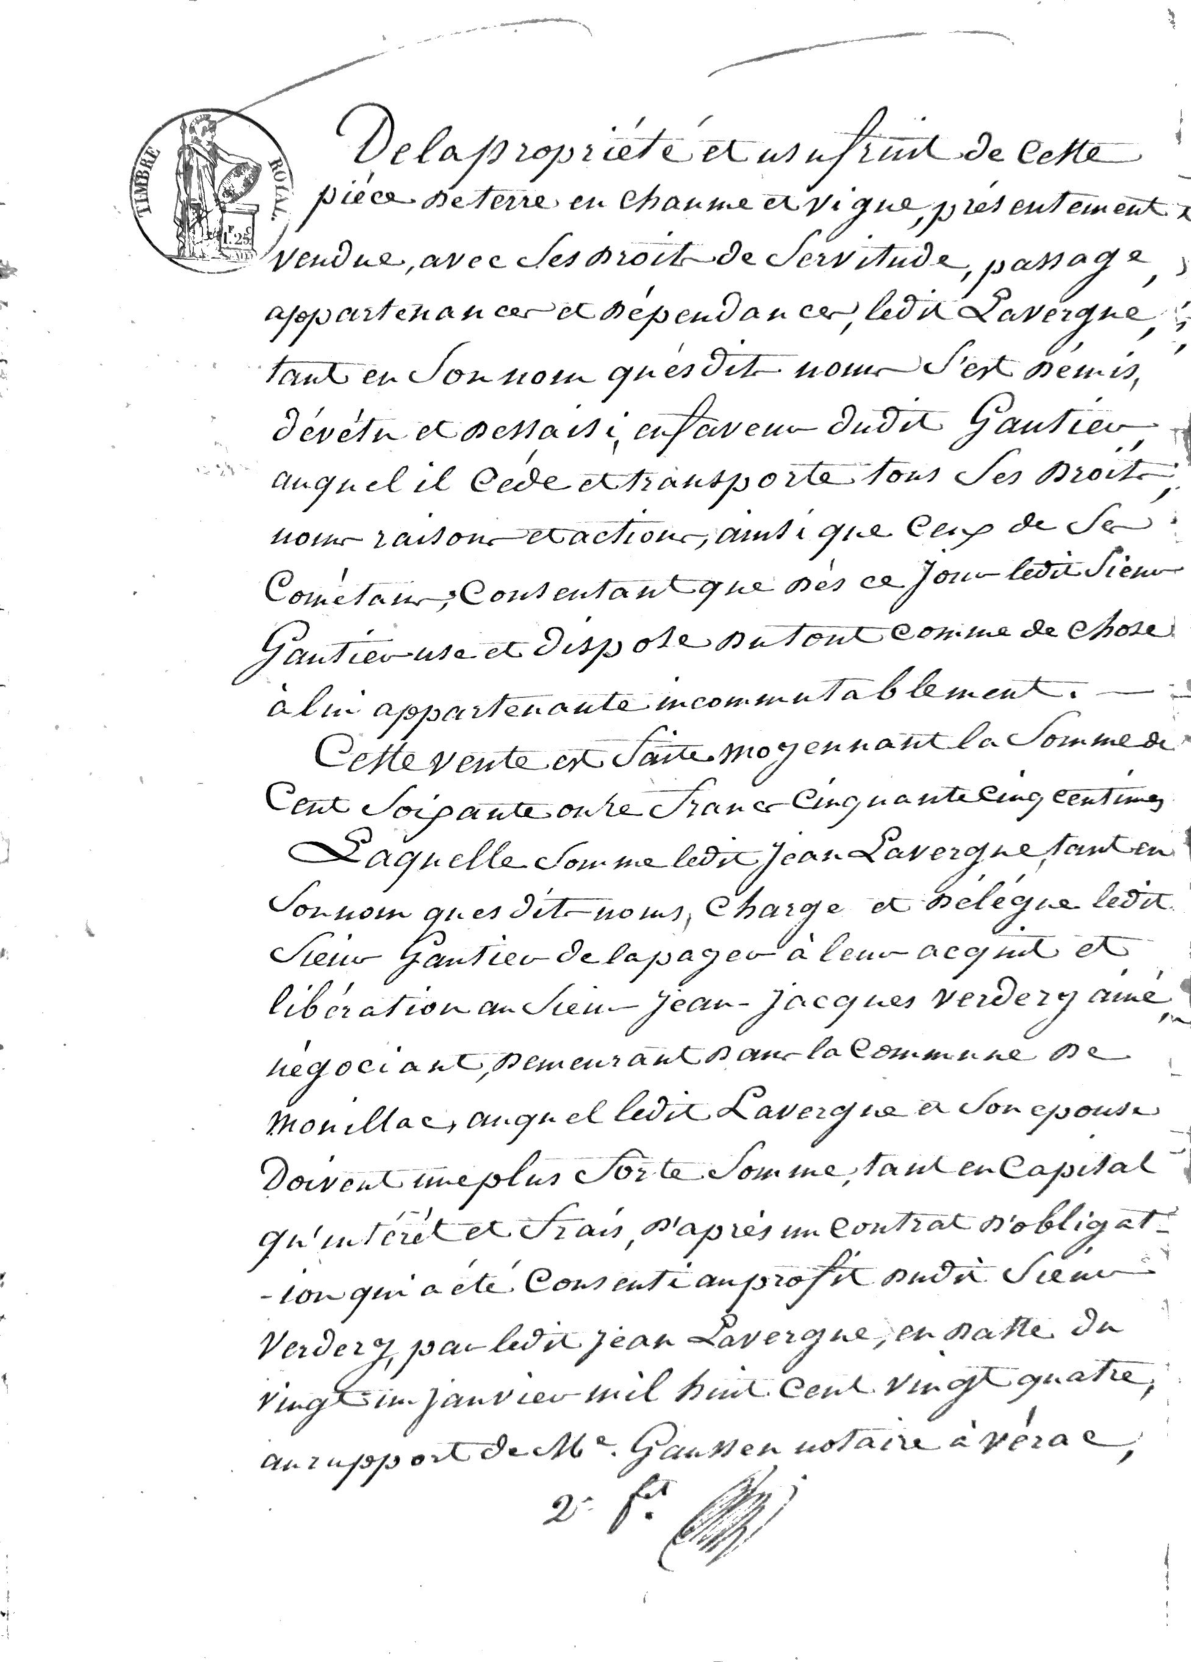 TIMBRE ROYAL
1f. 25c
De la propriété et usufruit de cette
piéce de terre en chaume et vigne, présentement
vendue, avec ses droits de servitude, passage,
appartenances et dépendances, ledit Lavergne,
tant en son nom qu'ésdits noms s'est démis,
dévétu et dessaisi, en faveur dudit Gautier,
auquel il céde et transporte tous ses droits,
noms raisons et actions, ainsi que ceux de ses
Cométans; Consentant que dés ce jour ledit sieur
Gautier use et dispose du tout comme de chose
à lui appartenante incommutablement. —
Cette vente est faite moyennant la somme de
Cent soixante onze francs cinquante cinq centimes
Laquelle somme ledit Jean Lavergne, tant en
son nom qu'esdits noms, charge et délégue ledit
Sieur Gautier de la payer à leur acquit et
libération au sieur Jean-Jacques Verdery ainé,
négociant, demeurant dans la commune de
Mouillac, auquel ledit Lavergne et son epouse
Doivent une plus forte somme, tant en capital
qu'intérêt et frais, d'aprés un contrat d'obligat-
-ion qui a été consenti au profit dudit sieur
Verdery, par ledit Jean Lavergne, en datte du
vingt un janvier mil huit cent vingt quatre,
au rapport de Me. Gaussen notaire à vérac,
2e. fet.